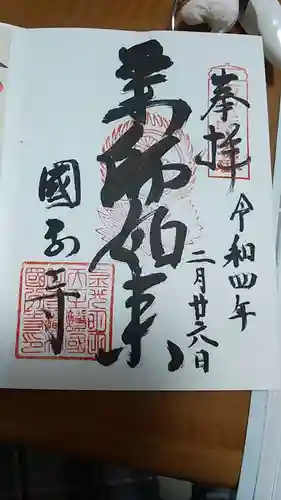 奉拝
令和四年
二月廿六日
薬師如来
國分寺